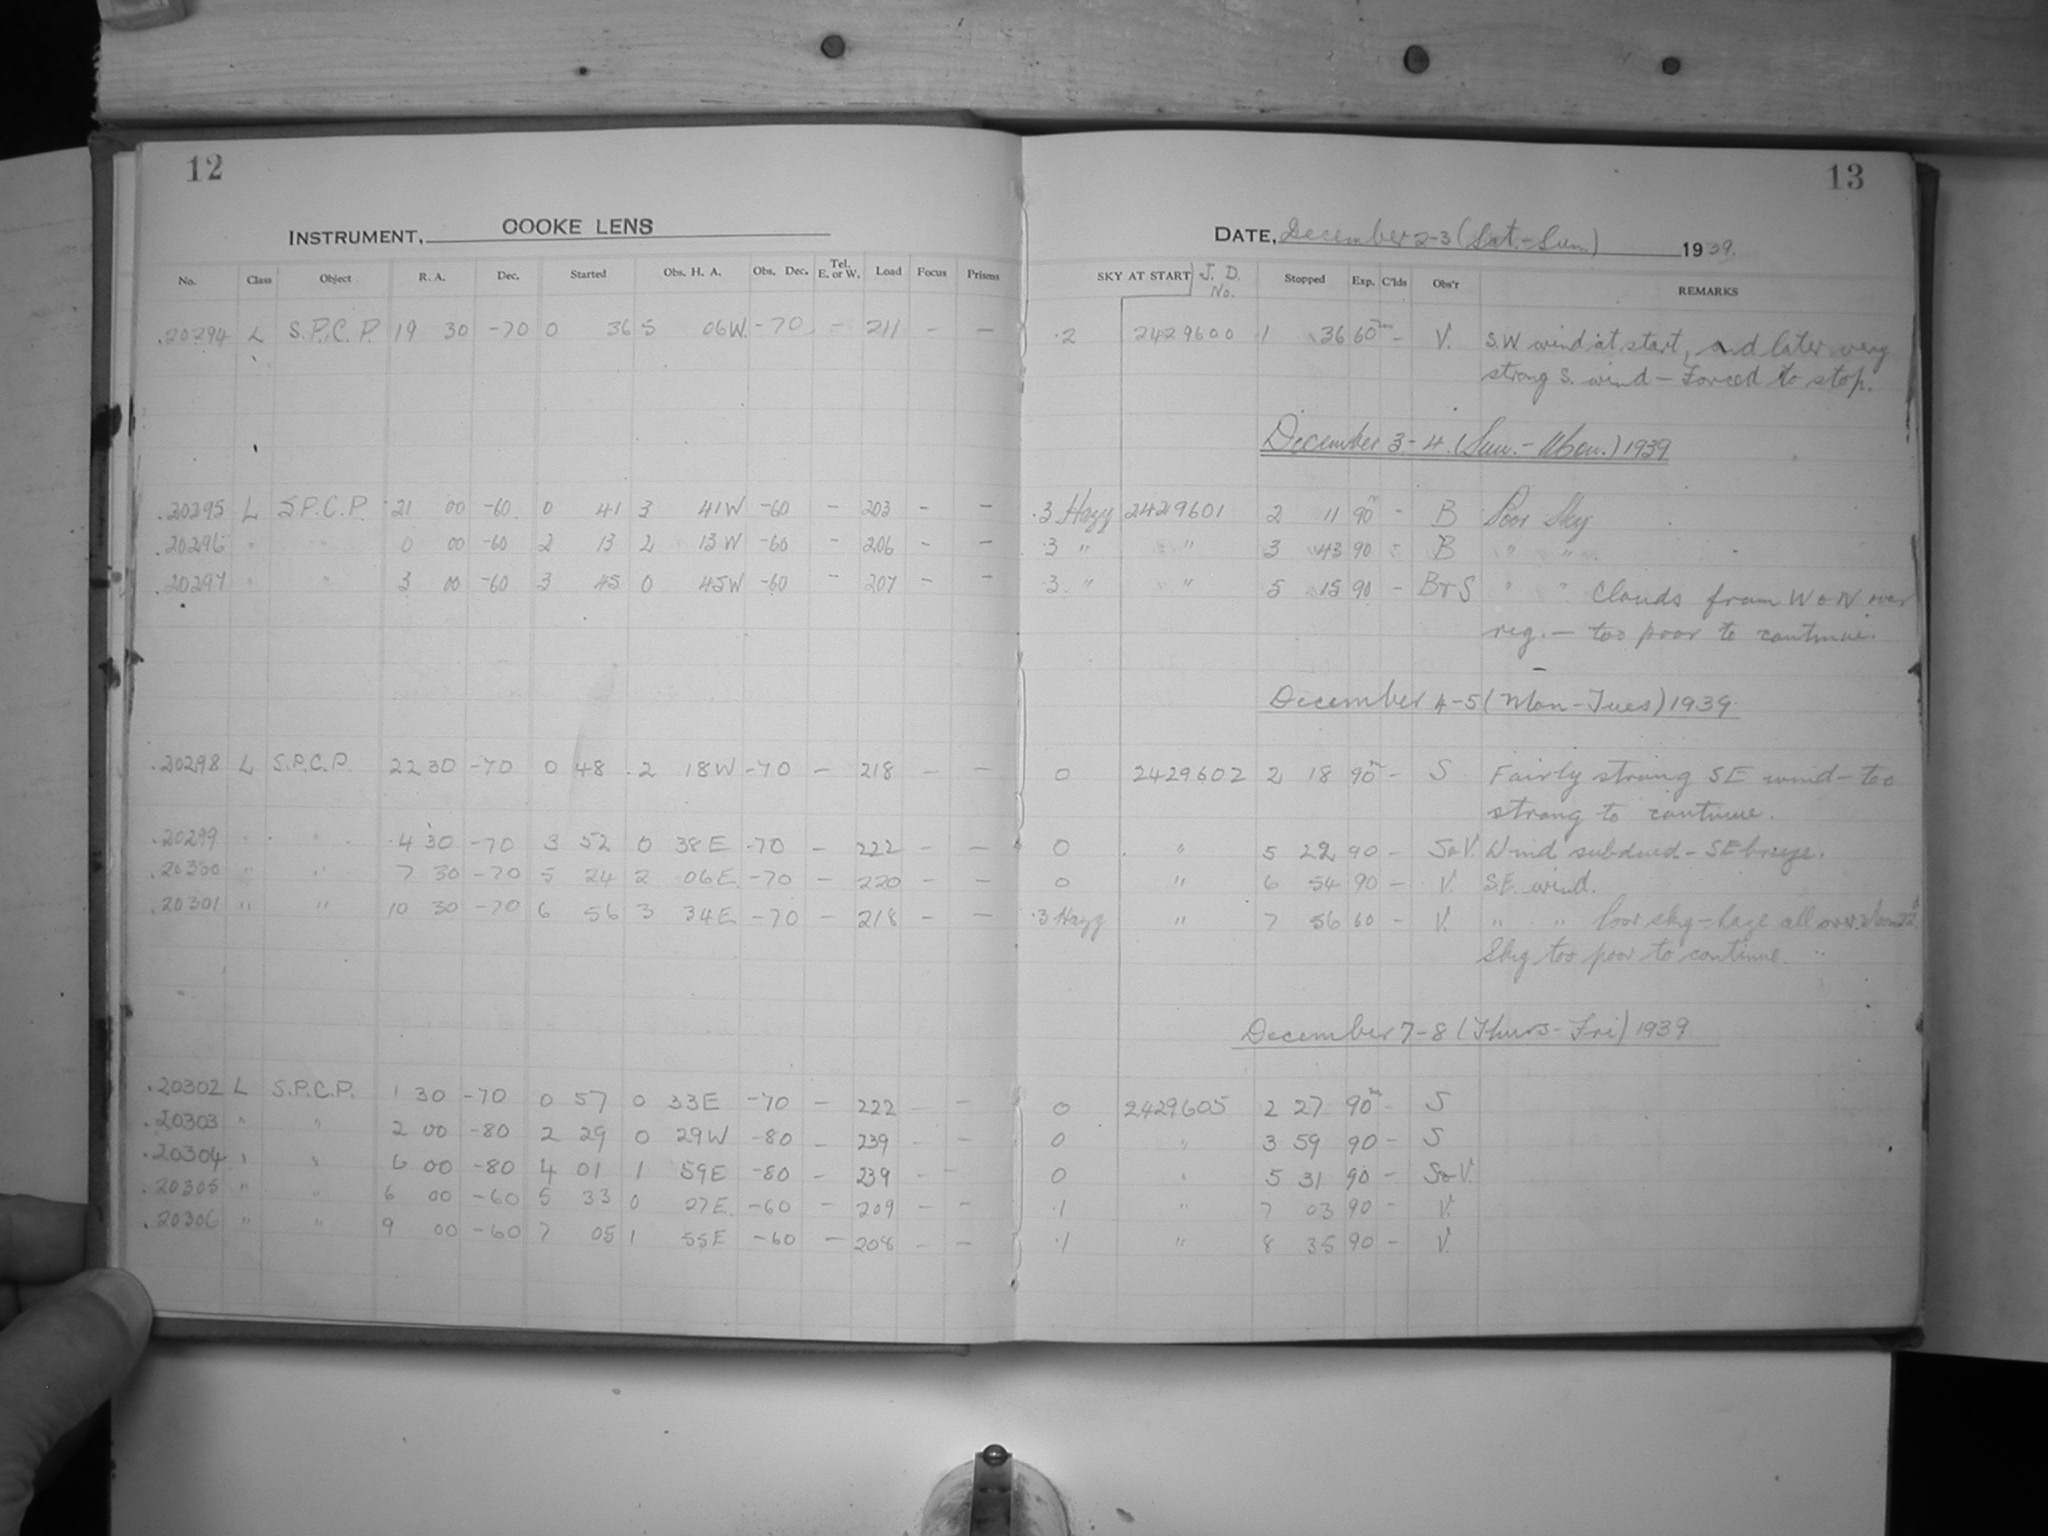 12
INSTRUMENT, COOKE LENS
No. Class Object R. A. Dec. Started Obs. H. A. Obs. Dec. Tel. E. or W. Load Focus Prisms
.20294 L S.P.C.P. 19 30 -70 0 36 5 06W. -70 - 211 - -
.20295 L S.P.C.P. 21 00 -60 0 41 3 41W -60 - 203 - -
.20296 " " 0 00 -60 2 13 2 13W -60 - 206 - -
.20297 " " 3 00 -60 3 45 0 45W -60 - 207 - -
.20298 L S.P.C.P. 22 30 -70 0 48 2 18W -70 - 218 - -
.20299 " " 4 30 -70 3 52 0 38E -70 - 222 - -
.20300 " " 7 30 -70 5 24 2 06E -70 - 220 - -
.20301 " " 10 30 -70 6 56 3 34E -70 - 218 - -
.20302 L S.P.C.P. 1 30 -70 0 57 0 33E -70 - 222 - -
.20303 " " 2 00 -80 2 29 0 29W -80 - 239 - -
.20304 " " 6 00 -80 4 01 1 59E -80 - 239 - -
.20305 " " 6 00 -60 5 33 0 27E. -60 - 209 - -
.20306 " " 9 00 -60 7 05 1 55E -60 - 208 - -
13
DATE, December 2-3 (Sat.-Sun.) 1939.
SKY AT START J. D. No. Stopped Exp. C'lds Obs'r REMARKS
.2 2429600 1 36 60m - V. S.W wind at start, and later very
strong S. wind - Forced to stop.
December 3-4 (Sun.-Mon.) 1939
.3 Hazy 2429601 2 11 90m - B Poor Sky
.3 " " 3 43 90 - B " "
.3 " " 5 15 90 - B&S " " Clouds from W & N over
reg. - too poor to continue.
December 4-5 (Mon-Tues) 1939
0 2429602 2 18 90m - S Fairly strong SE wind - too
strong to continue.
0 " 5 22 90 - S&V. Wind subdued - SE breeze.
0 " 6 54 90 - V. S.E. wind.
.3 Hazy " 7 56 60 - V. " " Poor sky - haze all over.
Sky too poor to continue.
December 7-8 (Thurs-Fri) 1939
0 2429605 2 27 90m - S
0 " 3 59 90 - S
0 " 5 31 90 - S&V.
.1 " 7 03 90 - V.
.1 " 8 35 90 - V.